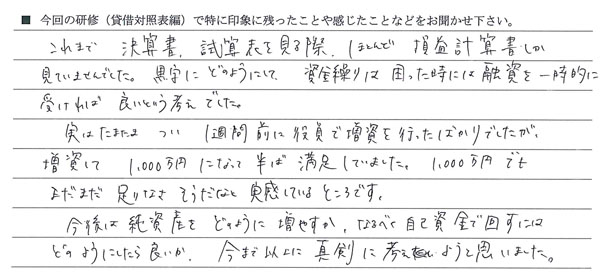 ■ 今回の研修（貸借対照表編）で特に印象に残ったことや感じたことなどをお聞かせ下さい。
これまで 決算書、試算表を見る際、ほとんど 損益計算書しか
見ていませんでした。黒字にどのようにして、資金繰りは困った時には融資を一時的に
受ければ 良いという考えでした。
実はたまたま つい 1週間前に役員で増資を行ったばかりでしたが、
増資して 1,000万円になって 半ば満足していました。1,000万円でも
まだまだ 足りなさそうだなと 実感しているところです。
今後は 純資産を どのように 増やすか、なるべく 自己資金で回すには
どのようにしたら良いか、今まで以上に 真剣に考えようと思いました。